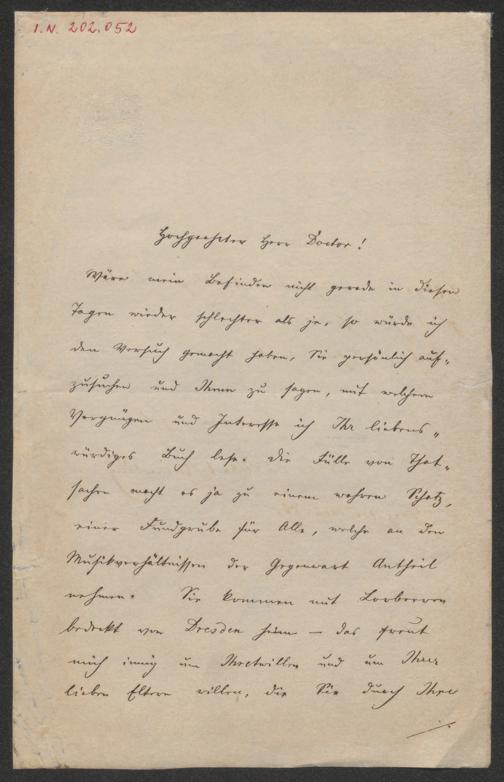 I.N. 202.052
Hochgeehrter Herr Doctor!
Wäre mein Befinden nicht gerade in diesen
Tagen wieder schlechter als je, so würde ich
den Versuch gemacht haben, Sie persönlich auf-
zusuchen und Ihnen zu sagen, mit welchem
Vergnügen und Interesse ich Ihr liebens-
würdiges Buch lese. Die Fülle von That-
sachen macht es ja zu einem wahren Schatz,
einer Fundgrube für Alle, welche an den
Musikverhältnissen der Gegenwart Antheil
nehmen. Sie kommen mit Lorbeeren
bedeckt von Dresden heim – das freut
mich innig um Ihretwillen und um Ihrer
lieben Eltern willen, die Sie durch Ihre